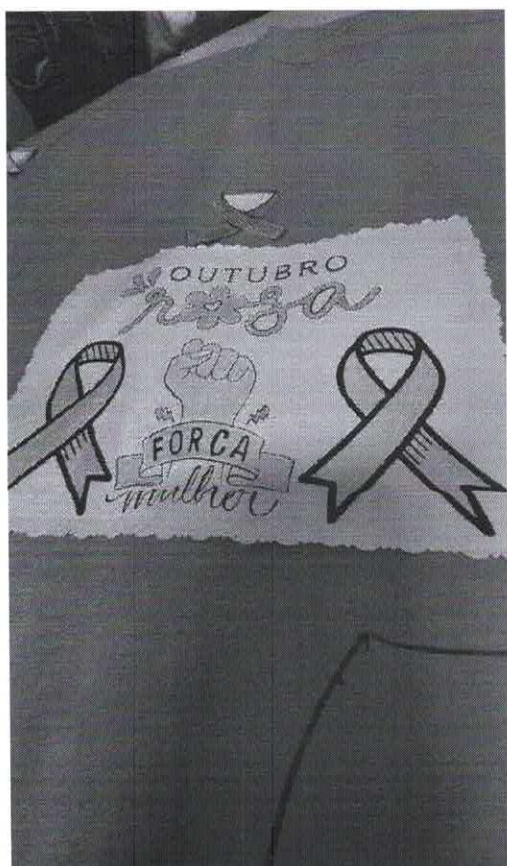 OUTUBRO
rosa
FORCA
mulher